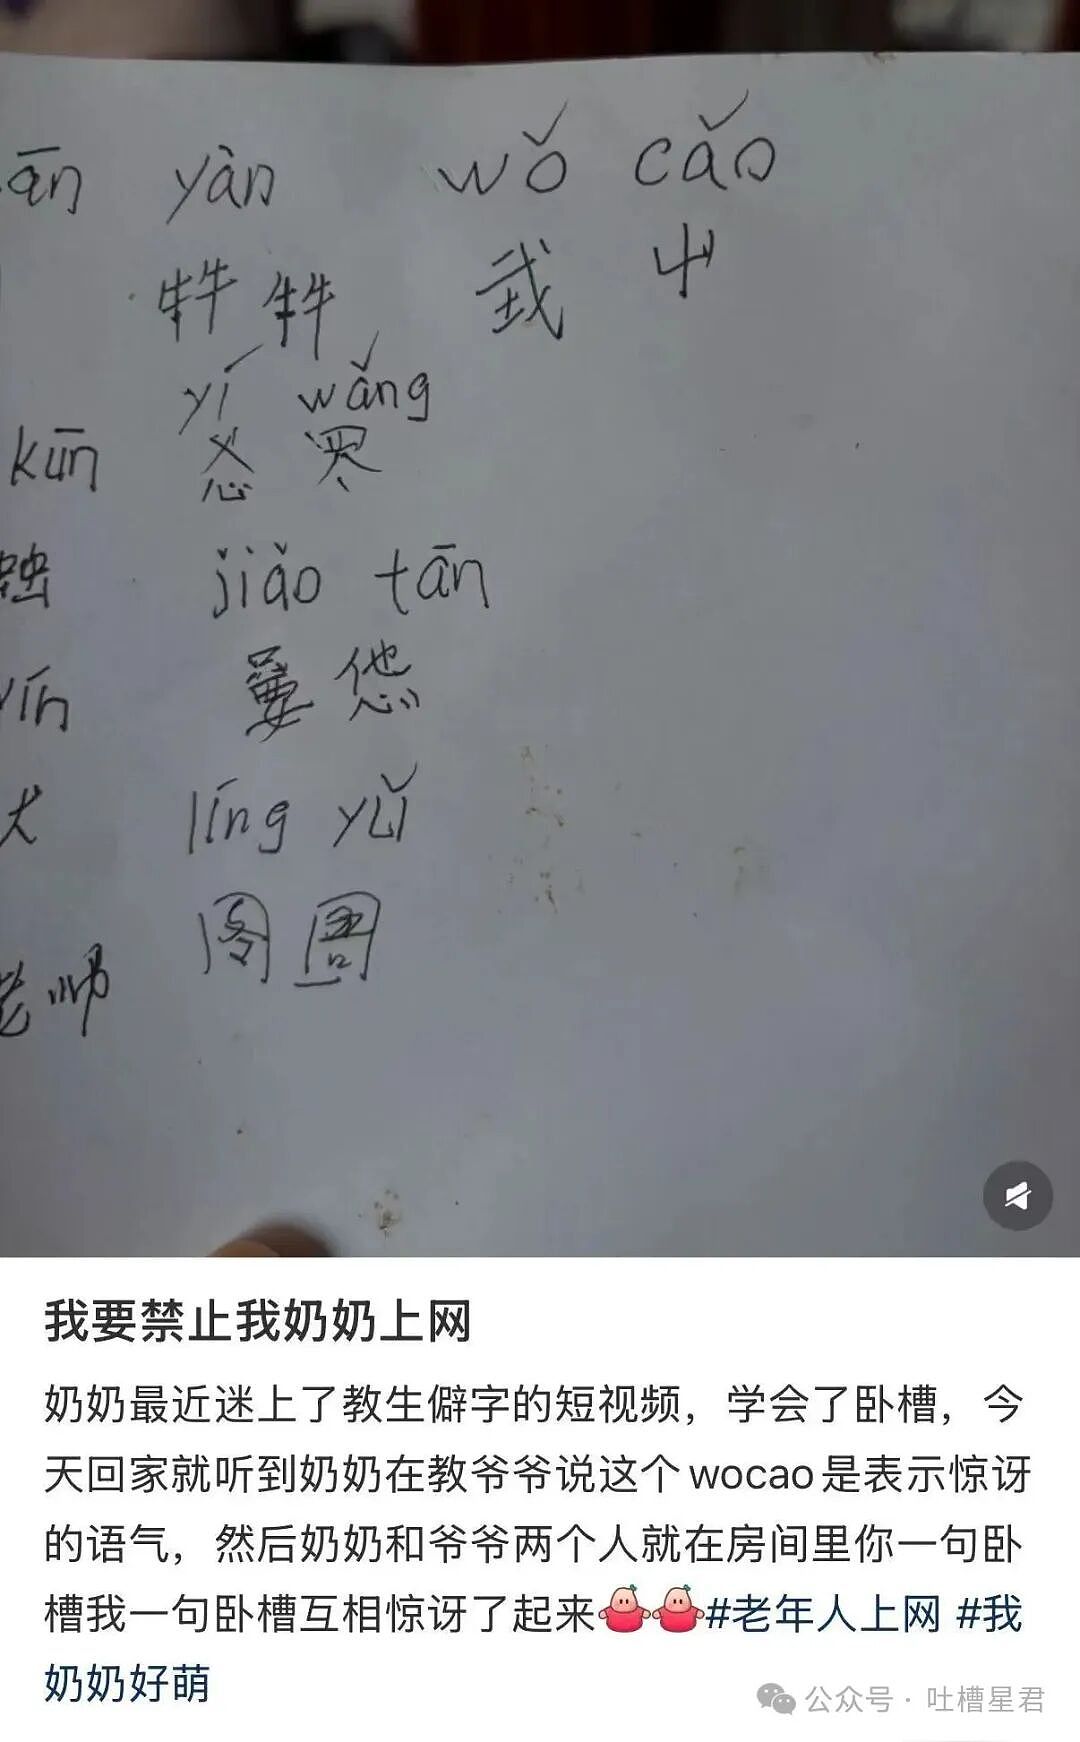 ān yàn wǒ cǎo
牪牪 戜 屮
yí wǎng
kūn 忢 㓁
jiǎo tān
嫑 怹
yín
líng yǔ
犬
囹圄
老师
我要禁止我奶奶上网
奶奶最近迷上了教生僻字的短视频，学会了卧槽，今
天回家就听到奶奶在教爷爷说这个wocao是表示惊讶
的语气，然后奶奶和爷爷两个人就在房间里你一句卧
槽我一句卧槽互相惊讶了起来#老年人上网 #我
奶奶好萌
公众号·吐槽星君